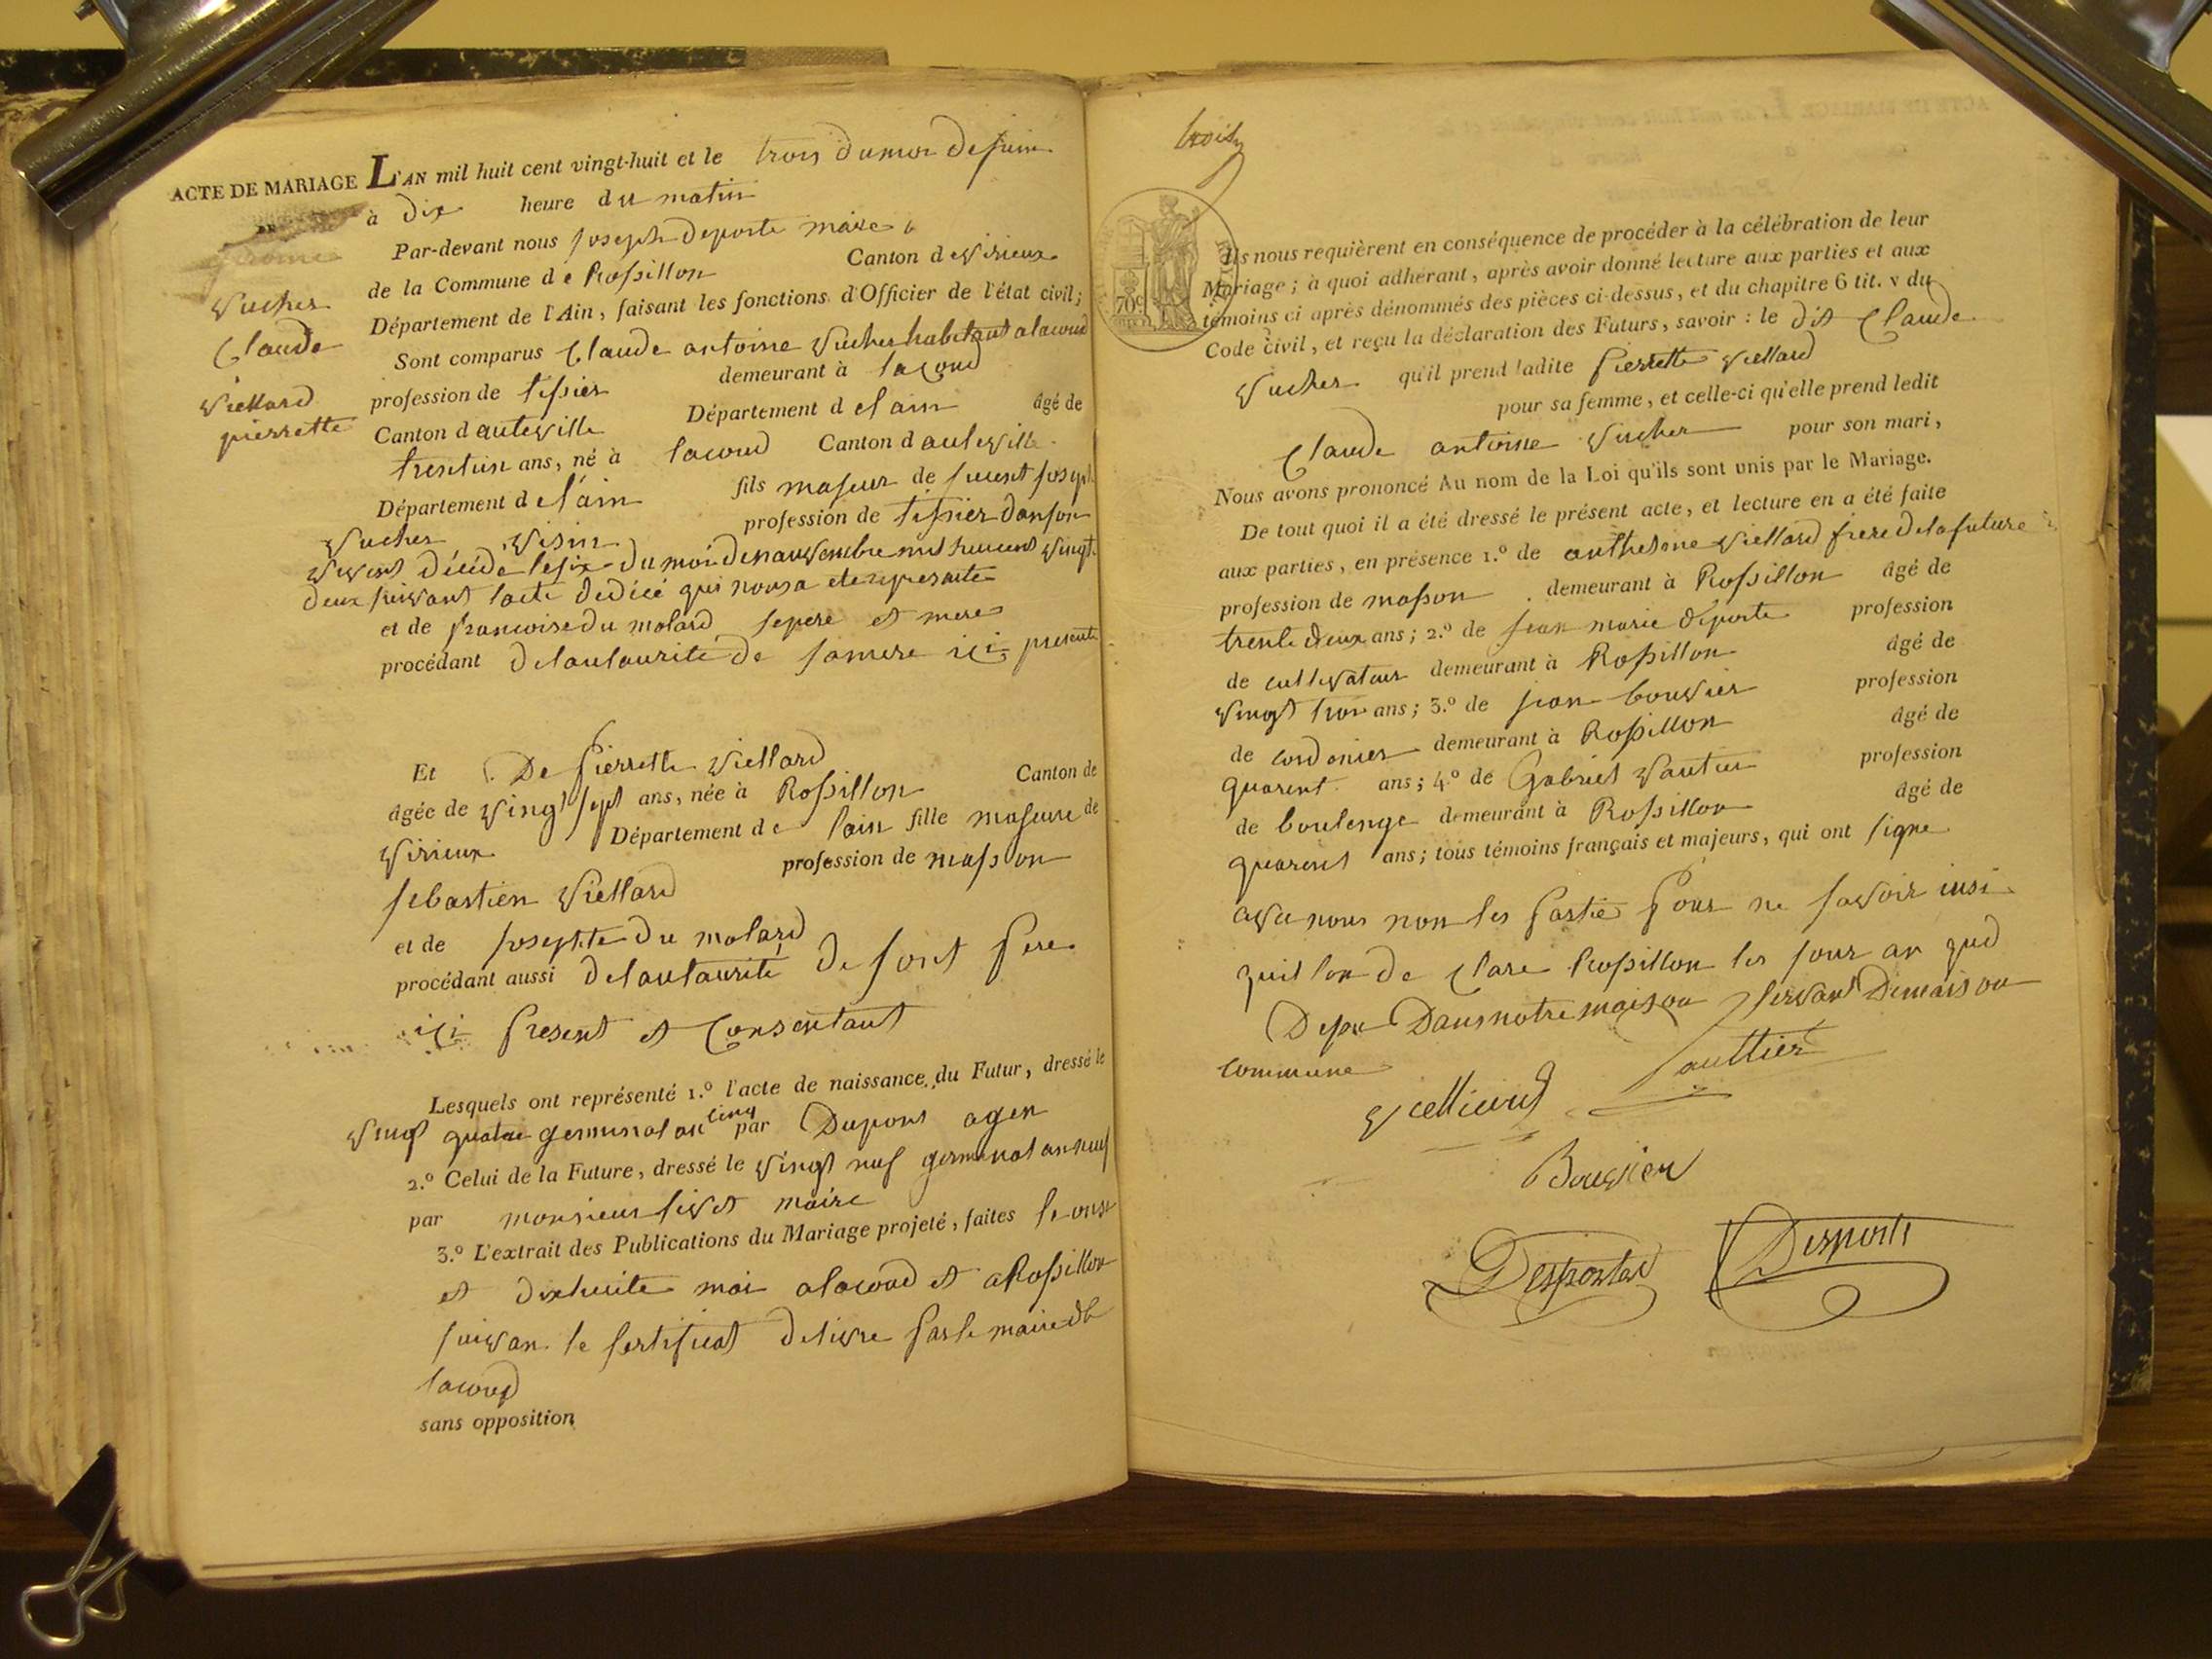 ACTE DE MARIAGE L'AN mil huit cent vingt-huit et le trois du moi de juin
DE à dix heure du matin
Par-devant nous joseph deporte maire
de la Commune de Rossillon Canton de virieux
Vucher
Département de l'Ain, faisant les fonctions d'Officier de l'état civil;
Claude
Sont comparus Claude antoine Vucher habitant a lacoud
profession de tissier demeurant à lacoud
Viellard
pierrette
Canton d auteville Département d el ain âgé de
trentun ans, né à lacoud Canton d auteville
Département d el'ain fils majeur de joseph
Vucher profession de tissier donson
vivant décédé le six du moi de nauvembre mil huicent vingt
deux suivant lacte dedicé qui nousa ete represante
et de francoise du molard se pere et mere
procédant delautaurite de samere ici presente
Et De pierrette viellard
âgée de vingt sept ans, née à Rossillon Canton de
virieux Département de lain fille majeure de
sebastien viellard profession de masson
et de josephte du molard
procédant aussi delautaurité de sont pere
ici present et consentant
Lesquels ont représenté 1.º l'acte de naissance du Futur, dressé le
vingt quatre germinal an cinq par Dupont agen
2.º Celui de la Future, dressé le vingt nuf germinal an nuf
par monsieur sivet maire
3.º L'extrait des Publications du Mariage projeté, faites le onse
et dixhuite mai alacoud et a Rossillon
suivan le sertificat delivre par le maire de
lacoud
sans opposition
trois
70c
Ils nous requièrent en conséquence de procéder à la célébration de leur
Mariage; à quoi adhérant, après avoir donné lecture aux parties et aux
témoins ci après dénommés des pièces ci-dessus, et du chapitre 6 tit. v du
Code civil, et reçu la déclaration des Futurs, savoir: le dit Claude
Vucher qu'il prend ladite pierrette viellard
pour sa femme, et celle-ci qu'elle prend ledit
Claude antoine Vucher pour son mari,
Nous avons prononcé Au nom de la Loi qu'ils sont unis par le Mariage.
De tout quoi il a été dressé le présent acte, et lecture en a été faite
aux parties, en présence 1.º de anthelme viellard frere de la future
profession de masson demeurant à Rossillon âgé de
trente deux ans; 2.º de jean marie deporte profession
de cultivateur demeurant à Rossillon âgé de
vingt troi ans; 3.º de jean bouvier profession
de cordonier demeurant à Rossillon âgé de
quarent ans; 4.º de Gabriel Vautier profession
de boulenge demeurant à Rossillon âgé de
quarent ans; tous témoins français et majeurs, qui ont signe
avec nous non les partie pour ne savoir insi
quil lon de clare Rossillon les jour an qued
Dans notre maison servant De maison
commune
viellard Vauttier
Bouvier
Desportes Desporte